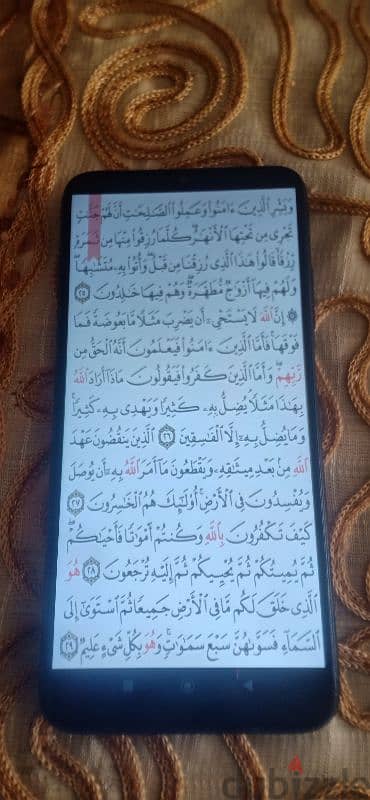 وَبَشِّرِ ٱلَّذِينَ ءَامَنُوا۟ وَعَمِلُوا۟ ٱلصَّٰلِحَٰتِ أَنَّ لَهُمْ جَنَّٰتٍ
تَجْرِى مِن تَحْتِهَا ٱلْأَنْهَٰرُ ۖ كُلَّمَا رُزِقُوا۟ مِنْهَا مِن ثَمَرَةٍ
رِّزْقًا ۙ قَالُوا۟ هَٰذَا ٱلَّذِى رُزِقْنَا مِن قَبْلُ ۖ وَأُتُوا۟ بِهِۦ مُتَشَٰبِهًا ۖ
وَلَهُمْ فِيهَآ أَزْوَٰجٌ مُّطَهَّرَةٌ ۖ وَهُمْ فِيهَا خَٰلِدُونَ ٢٥
۞ إِنَّ ٱللَّهَ لَا يَسْتَحْىِۦٓ أَن يَضْرِبَ مَثَلًا مَّا بَعُوضَةً فَمَا
فَوْقَهَا ۚ فَأَمَّا ٱلَّذِينَ ءَامَنُوا۟ فَيَعْلَمُونَ أَنَّهُ ٱلْحَقُّ مِن
رَّبِّهِمْ ۖ وَأَمَّا ٱلَّذِينَ كَفَرُوا۟ فَيَقُولُونَ مَاذَآ أَرَادَ ٱللَّهُ
بِهَٰذَا مَثَلًا ۘ يُضِلُّ بِهِۦ كَثِيرًا وَيَهْدِى بِهِۦ كَثِيرًا ۚ
وَمَا يُضِلُّ بِهِۦٓ إِلَّا ٱلْفَٰسِقِينَ ٢٦ ٱلَّذِينَ يَنقُضُونَ عَهْدَ
ٱللَّهِ مِنۢ بَعْدِ مِيثَٰقِهِۦ وَيَقْطَعُونَ مَآ أَمَرَ ٱللَّهُ بِهِۦٓ أَن يُوصَلَ
وَيُفْسِدُونَ فِى ٱلْأَرْضِ ۚ أُو۟لَٰٓئِكَ هُمُ ٱلْخَٰسِرُونَ ٢٧
كَيْفَ تَكْفُرُونَ بِٱللَّهِ وَكُنتُمْ أَمْوَٰتًا فَأَحْيَٰكُمْ ۖ
ثُمَّ يُمِيتُكُمْ ثُمَّ يُحْيِيكُمْ ثُمَّ إِلَيْهِ تُرْجَعُونَ ٢٨ هُوَ
ٱلَّذِى خَلَقَ لَكُم مَّا فِى ٱلْأَرْضِ جَمِيعًا ثُمَّ ٱسْتَوَىٰٓ إِلَى
ٱلسَّمَآءِ فَسَوَّىٰهُنَّ سَبْعَ سَمَٰوَٰتٍ ۚ وَهُوَ بِكُلِّ شَىْءٍ عَلِيمٌ ٢٩
dubizzle